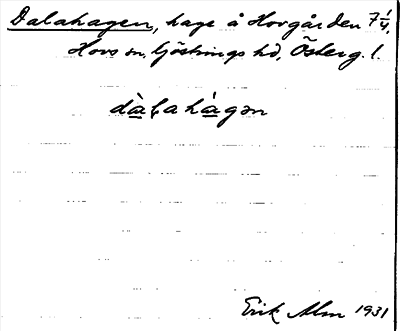 Dalahagen, hage å Horgården 7 1/4,
Hovs sn, Göstrings hd, Österg. l.
dàlahágən
Erik Alm 1931